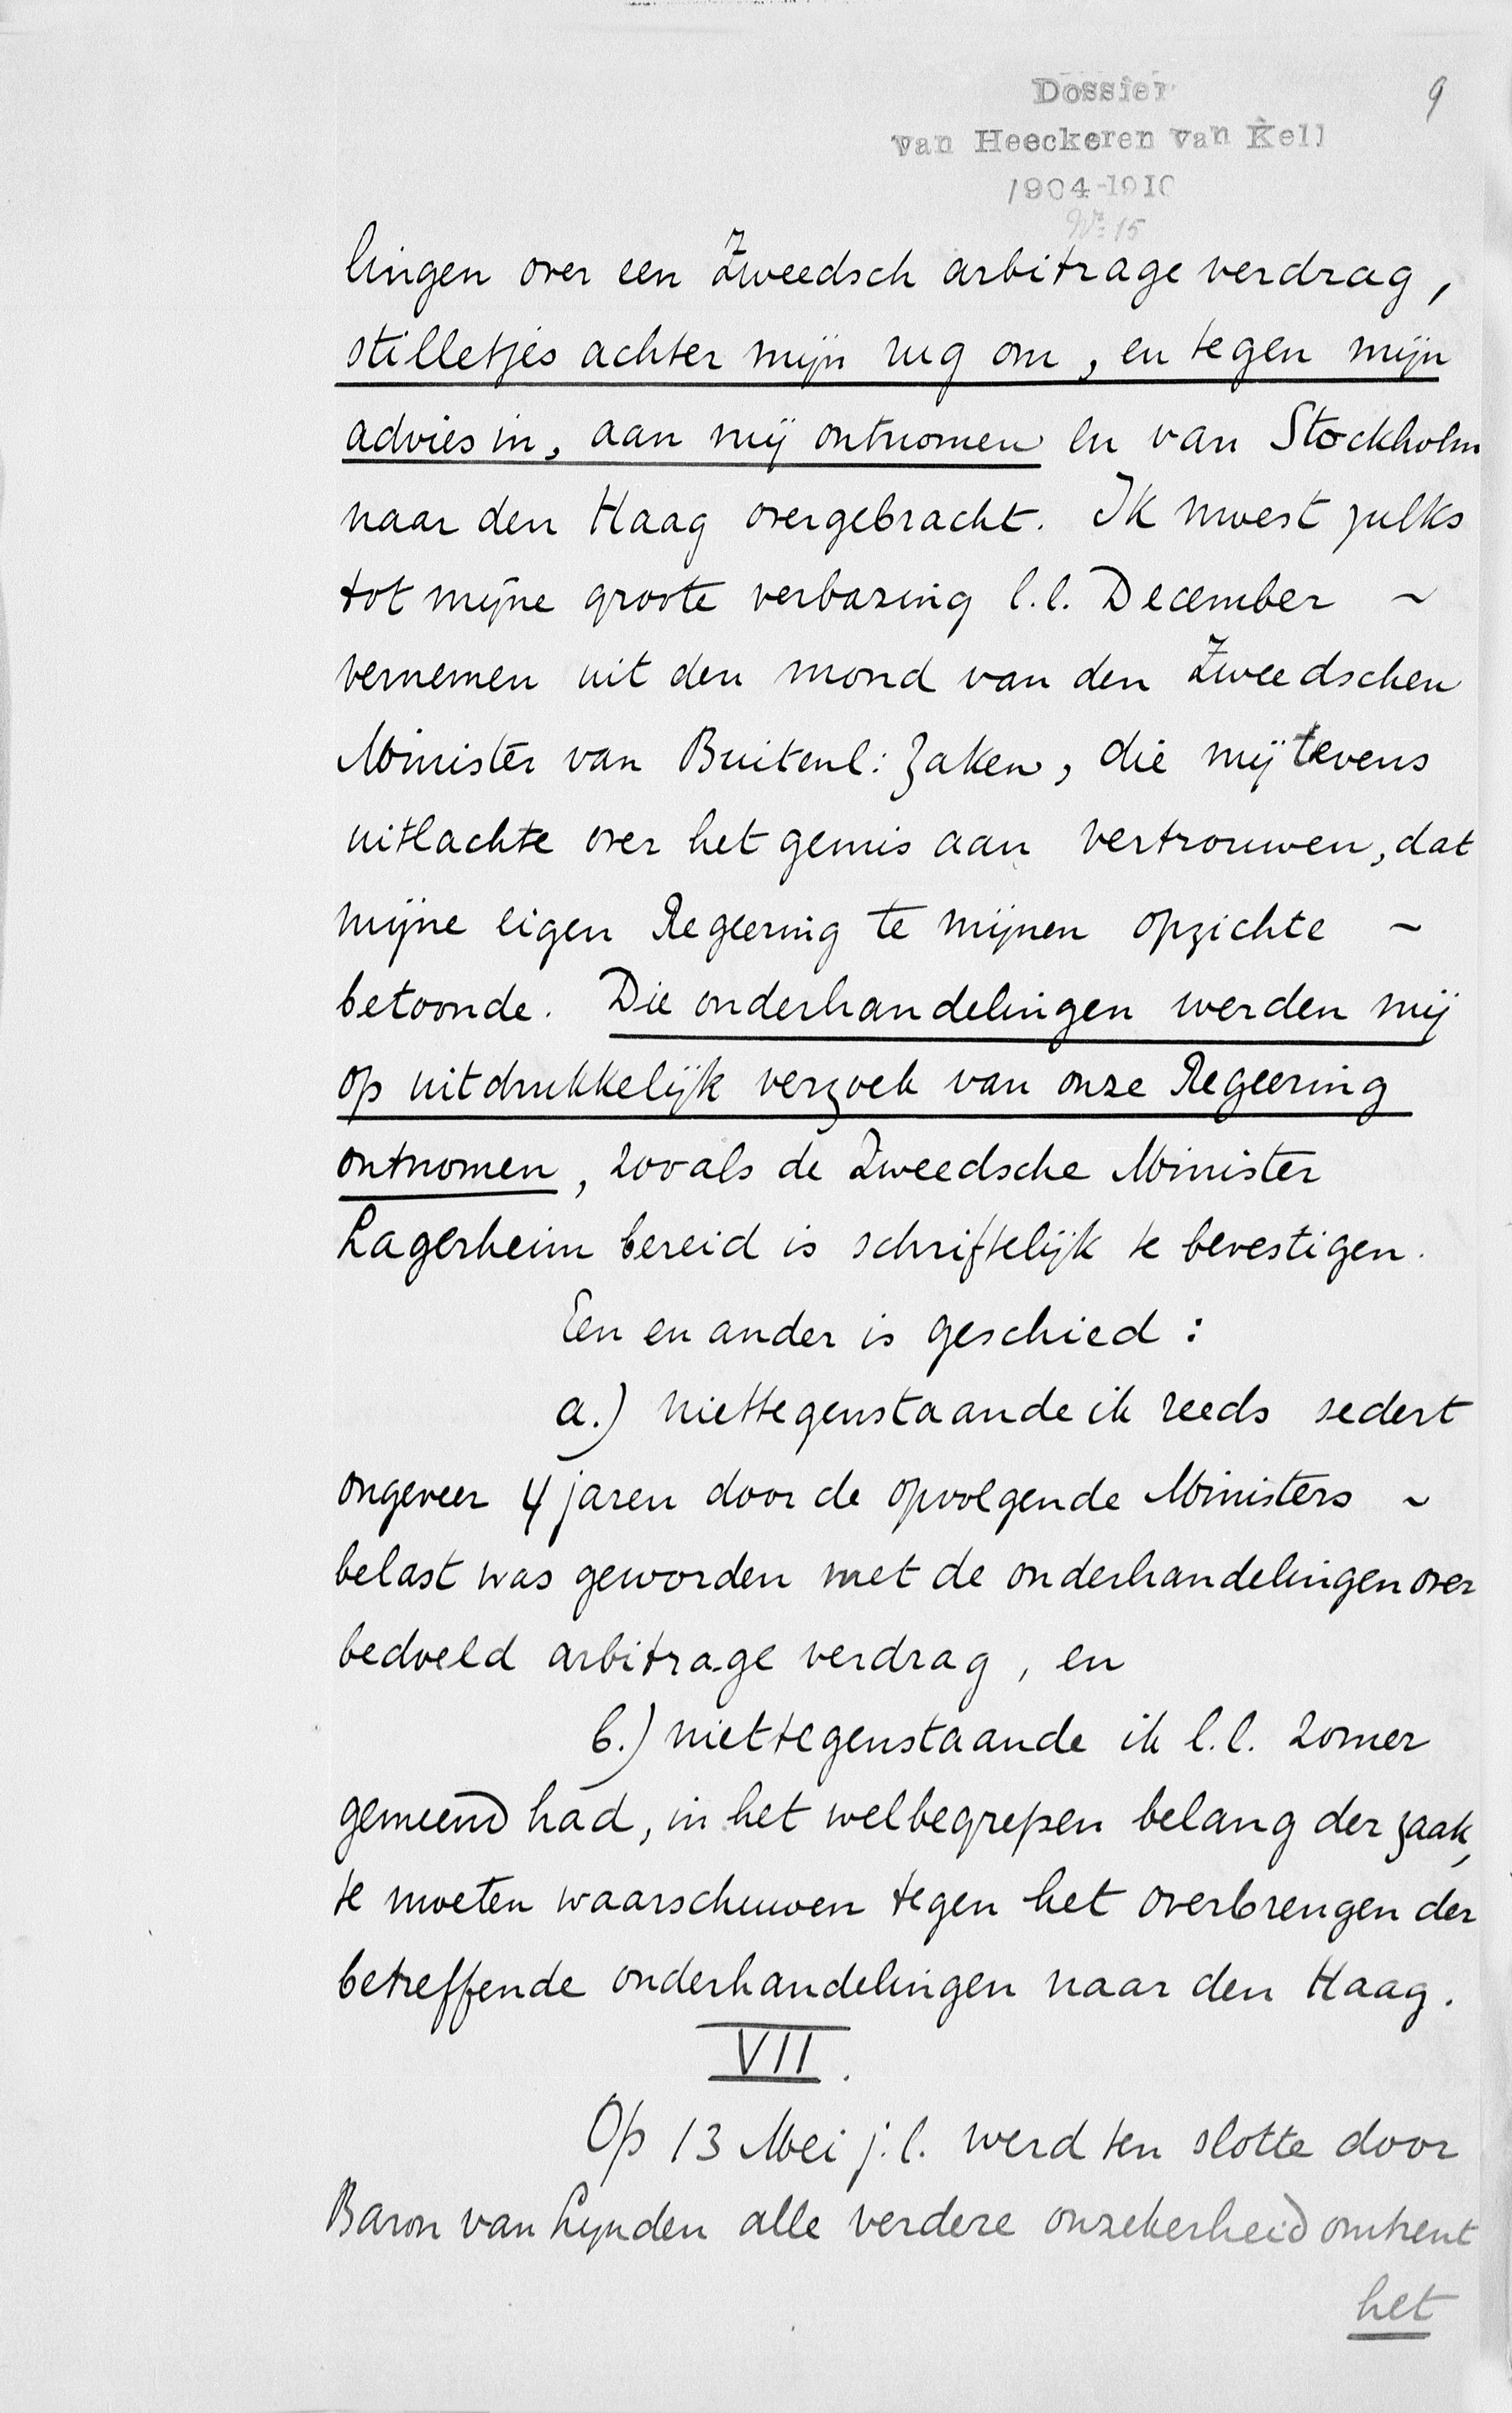 Dossier
9
van Heeckeren van Kell
1904-1910
Nº 15
lingen over een Zweedsch arbitrage verdrag,
stilletjes achter mijn rug om, en tegen mijn
advies in, aan mij ontnomen en van Stockholm
naar den Haag overgebracht. Ik moest zulks
tot mijne groote verbazing l.l. December ~
vernemen uit den mond van den Zweedschen
Minister van Buitenl: Zaken, die mij tevens
uitlachte over het gemis aan vertrouwen, dat
mijne eigen Regeering te mijnen opzichte ~
betoonde. Die onderhandelingen werden mij
op uitdrukkelijk verzoek van onze Regeering
ontnomen, zooals de Zweedsche Minister
Lagerheim bereid is schriftelijk te bevestigen.
Een en ander is geschied:
a.) niettegenstaande ik reeds sedert
ongeveer 4 jaren door de opvolgende Ministers ~
belast was geworden met de onderhandelingen over
bedoeld arbitrage verdrag, en
b.) niettegenstaande ik l.l. zomer
gemeend had, in het welbegrepen belang der zaak,
te moeten waarschuwen tegen het overbrengen der
betreffende onderhandelingen naar den Haag.
VII.
Op 13 Mei j.l. werd ten slotte door
Baron van Lynden alle verdere onzekerheid omtrent
het